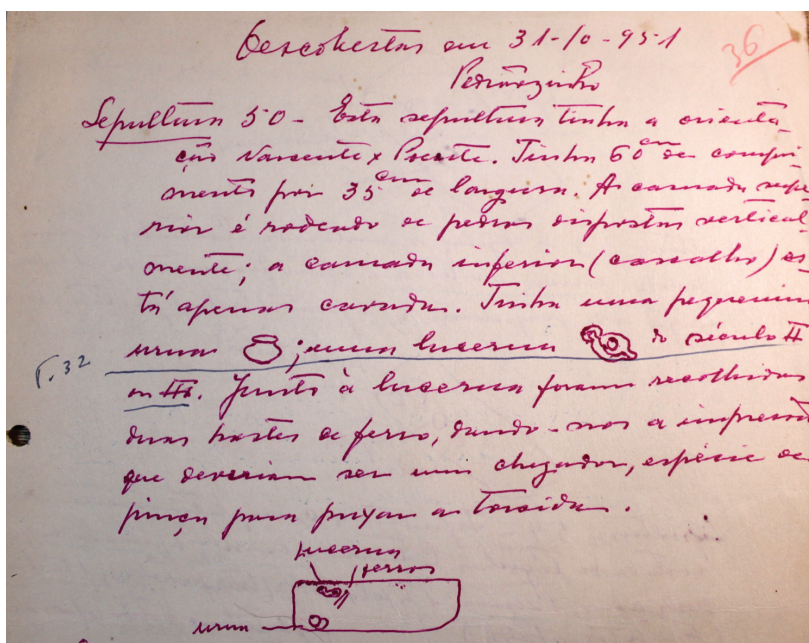 Descobertas em 31-10-951
36
Pedrãozinho
Sepultura 50 - Esta sepultura tinha a orienta
ção Nascente x Poente. Tinha 60 cm de compri
mento por 35 cm de largura. A camada supe
rior é rodeada de pedras dispostas vertical
mente; a camada inferior (cascalho) es
tá apenas cavada. Tinha uma pequenina
urna ; uma lucerna do século II
T. 32
ou III. Junto à lucerna foram recolhidas
duas hastes de ferro, dando-nos a impressão
que deveriam ser um chegador, espécie de
pinça para puxar a torcida.
lucerna
ferros
urna